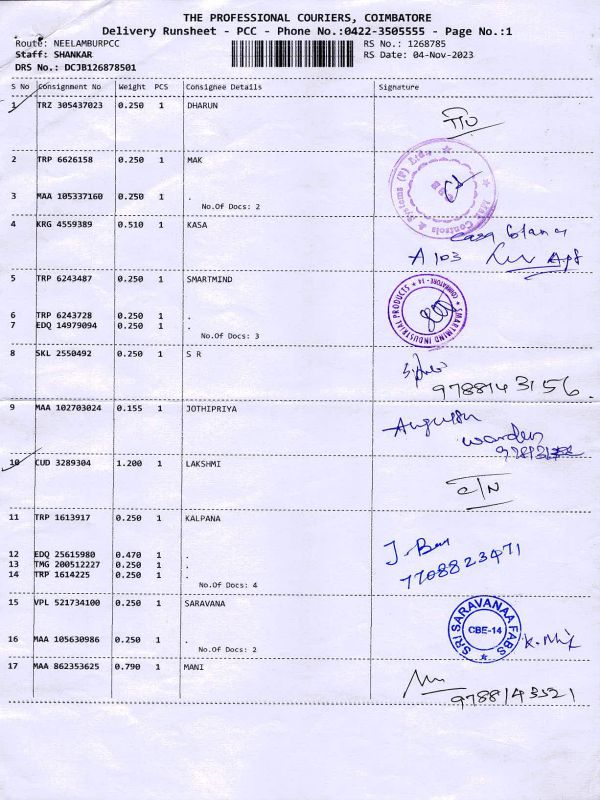 THE PROFESSIONAL COURIERS, COIMBATORE
Delivery Runsheet - PCC - Phone No.:0422-3505555 - Page No.:1
Route: NEELAMBURPCC RS No.: 1268785
Staff: SHANKAR RS Date: 04-Nov-2023
DRS No.: DCJB126878501
S No Consignment No Weight PCS Consignee Details Signature
1 TRZ 305437023 0.250 1 DHARUN
2 TRP 6626158 0.250 1 MAK
3 MAA 105337160 0.250 1 .
No.Of Docs: 2
MAK Controls & Systems (P) Ltd.,
4 KRG 4559389 0.510 1 KASA
A 103 Apt
5 TRP 6243487 0.250 1 SMARTMIND
6 TRP 6243728 0.250 1 .
7 EDQ 14979094 0.250 1 .
No.Of Docs: 3
SMARTMIND INDUSTRIAL PRODUCTS
COIMBATORE - 14
8 SKL 2550492 0.250 1 S R
9788143156.
9 MAA 102703024 0.155 1 JOTHIPRIYA
warden
10 CUD 3289304 1.200 1 LAKSHMI
C/N
11 TRP 1613917 0.250 1 KALPANA
12 EDQ 25615980 0.470 1 .
13 TMG 200512227 0.250 1 .
14 TRP 1614225 0.250 1 .
No.Of Docs: 4
7708823471
15 VPL 521734100 0.250 1 SARAVANA
16 MAA 105630986 0.250 1 .
No.Of Docs: 2
SRI SARAVANAA FABS
CBE-14
17 MAA 862353625 0.790 1 MANI
9788143521